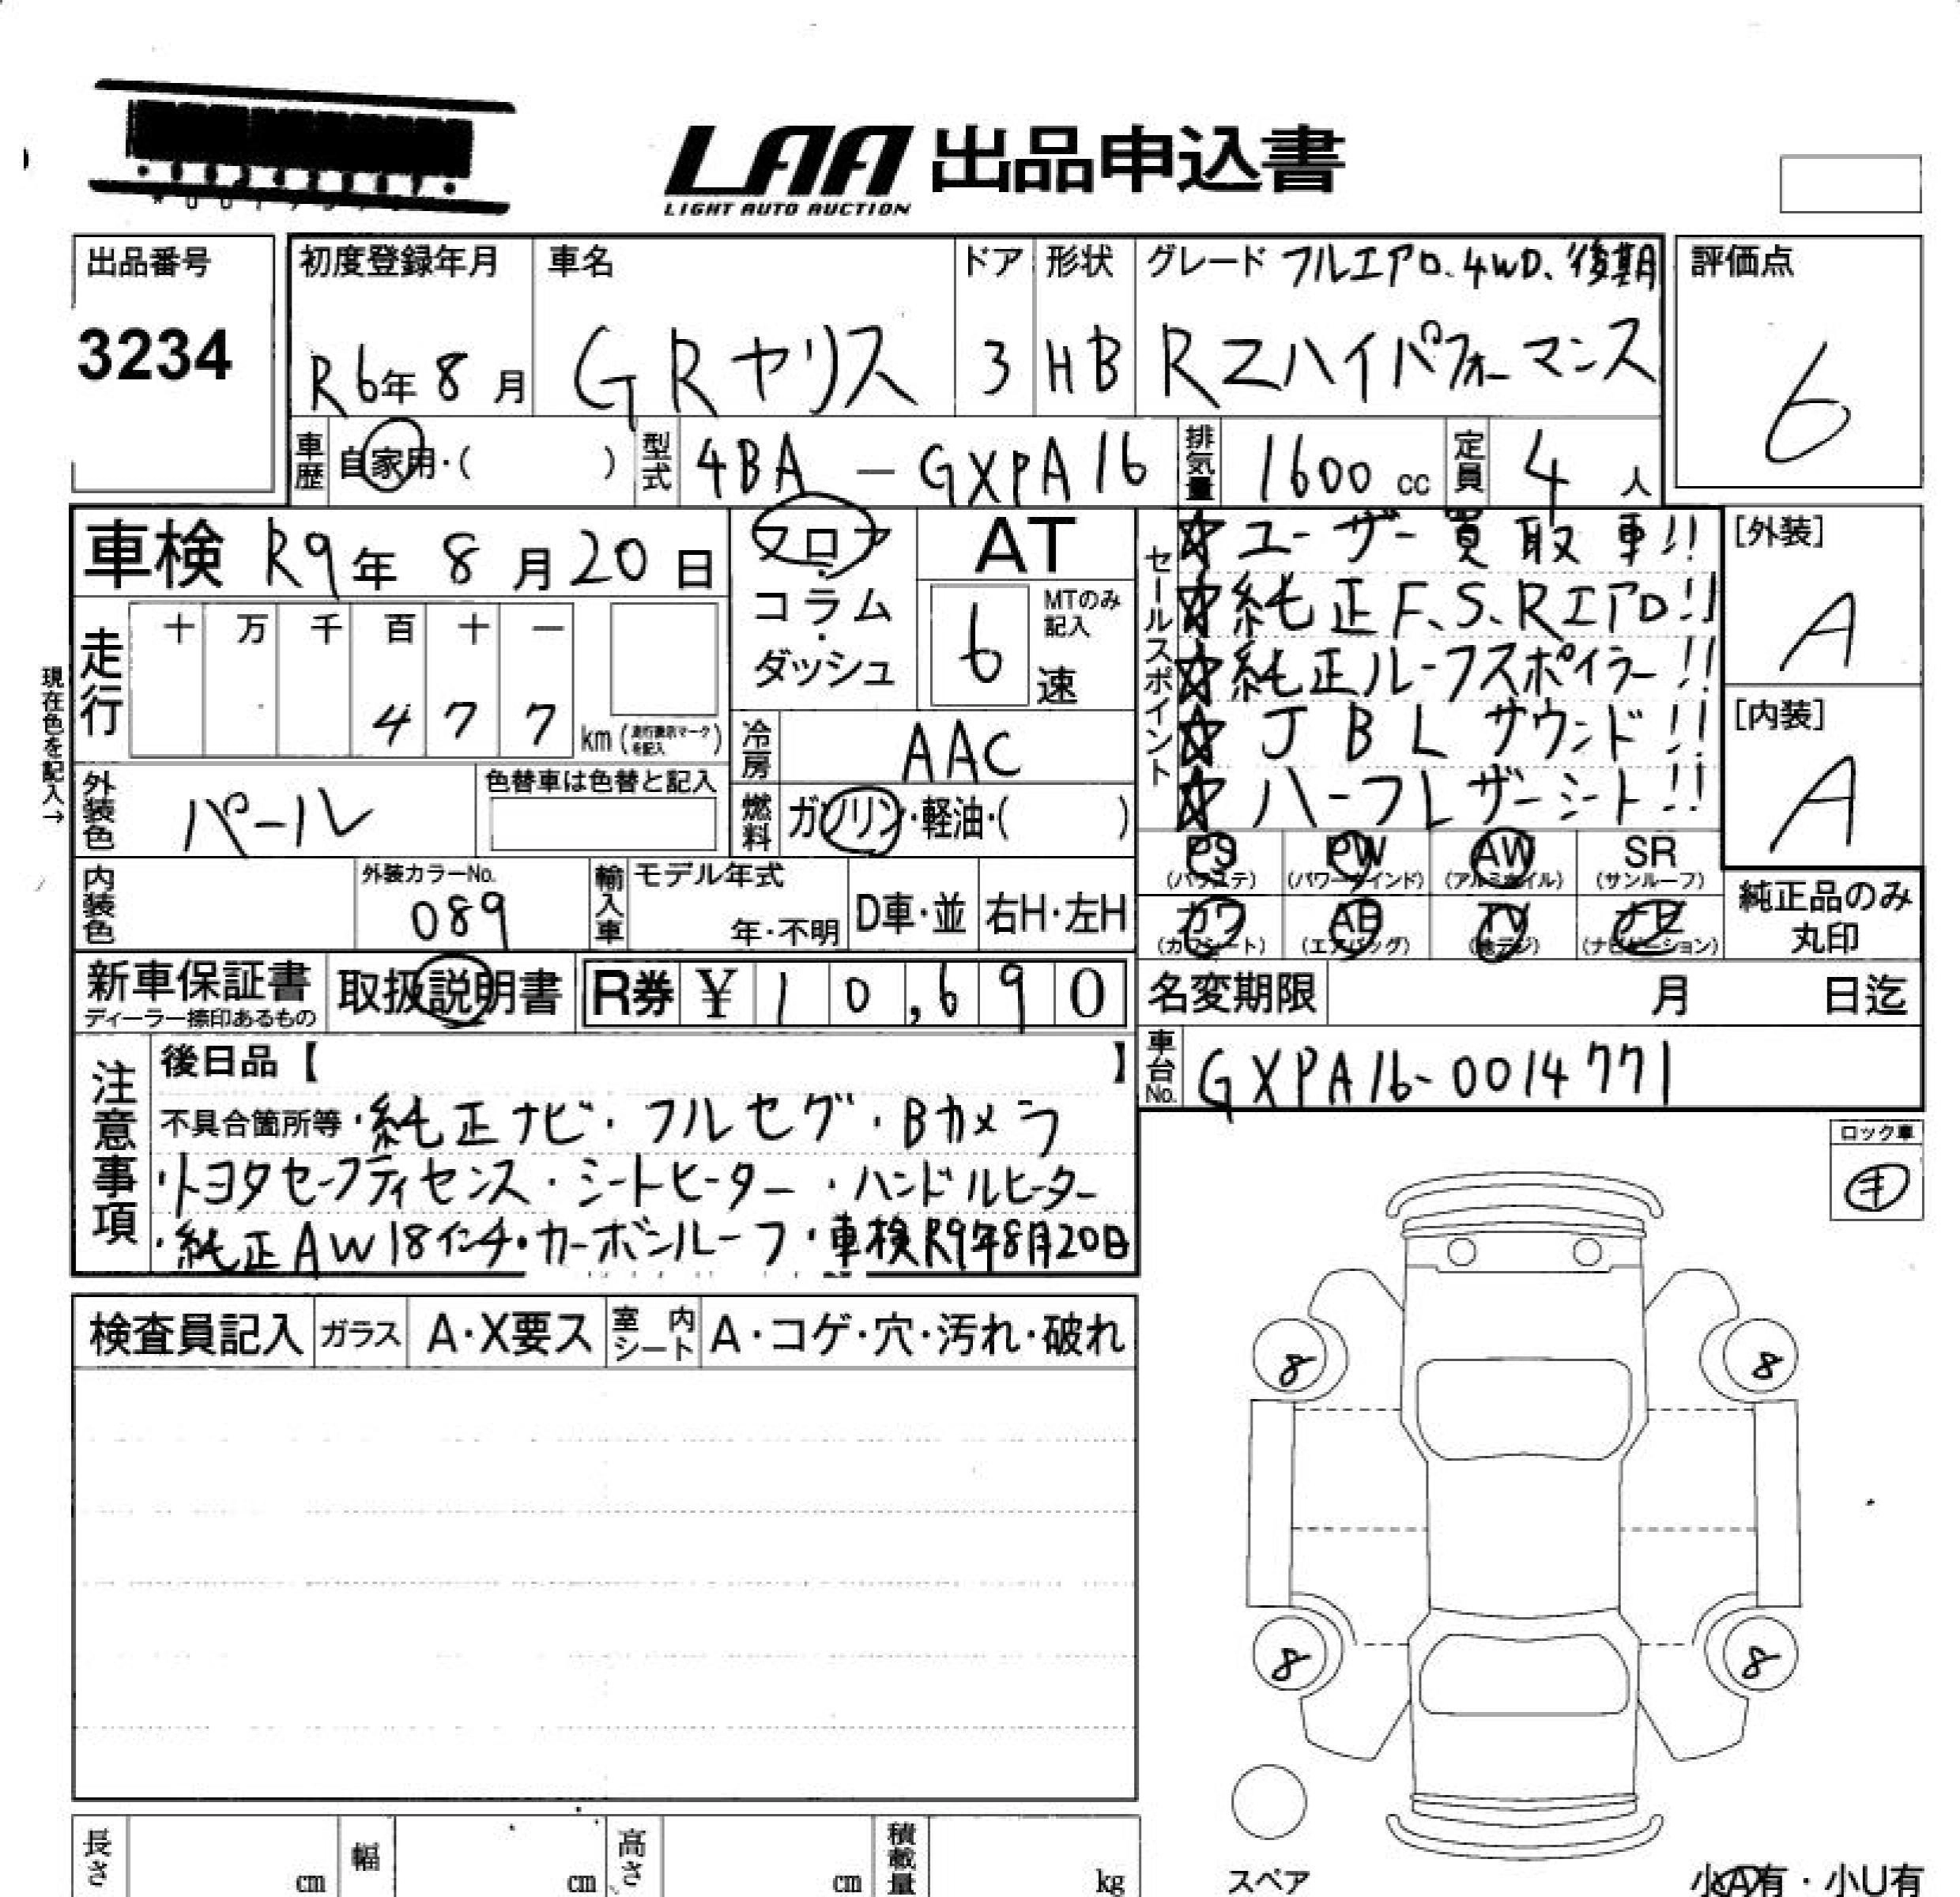 LAA 出品申込書
LIGHT AUTO AUCTION
出品番号
3234
初度登録年月
R6年8月
車名
GRヤリス
ドア
3
形状
HB
グレード フルエアロ、4WD、後期
RZハイパフォーマンス
評価点
6
車歴 自家用・( )
型式 4BA - GXPA16
排気量 1600 cc
定員 4 人
車検 R9年 8月20日
フロア
・
コラム
・
ダッシュ
AT
6
MTのみ
記入
速
セールスポイント
☆ユーザー買取車!!
☆純正F、S、Rエアロ!!
☆純正ルーフスポイラー!!
☆JBLサウンド!!
☆ハーフレザーシート!!
[外装]
A
[内装]
A
現在色を記入→
走行
十 万 千 百 十 一
4 7 7
km(走行表示マークを記入)
冷房 AAC
外装色 パール
色替車は色替と記入
燃料 ガソリン・軽油・( )
PS
(パワステ)
PW
(パワーウインド)
AW
(アルミホイル)
SR
(サンルーフ)
内装色
外装カラーNo.
089
輸入車
モデル年式
年・不明
D車・並
右H・左H
カワ
(カワシート)
AB
(エアバッグ)
TV
(地デジ)
ナビ
(ナビゲーション)
純正品のみ
丸印
新車保証書
ディーラー捺印あるもの
取扱説明書
R券 ¥10,690
名変期限 月 日迄
車台No. GXPA16-0014771
注意事項
後日品【 】
不具合箇所等・純正ナビ・フルセグ・Bカメラ
・トヨタセーフティセンス・シートヒーター・ハンドルヒーター
・純正AW18インチ・カーボンルーフ・車検R9年8月20日
ロック車
検査員記入
ガラス A・X要ス
室内シート A・コゲ・穴・汚れ・破れ
8 8
8 8
スペア
小A有・小U有
長さ cm
幅 cm
高さ cm
積載量 kg